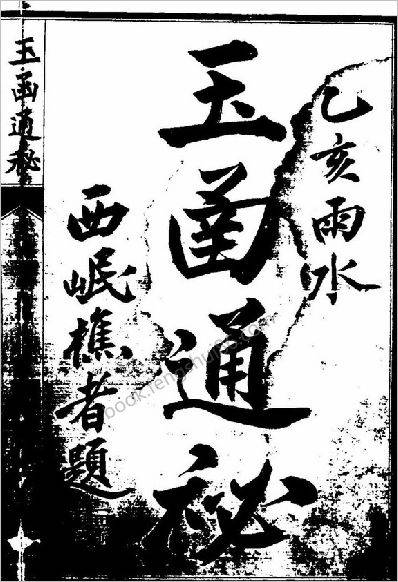 乙亥雨水
玉函通秘
西岷樵者題
玉函通秘